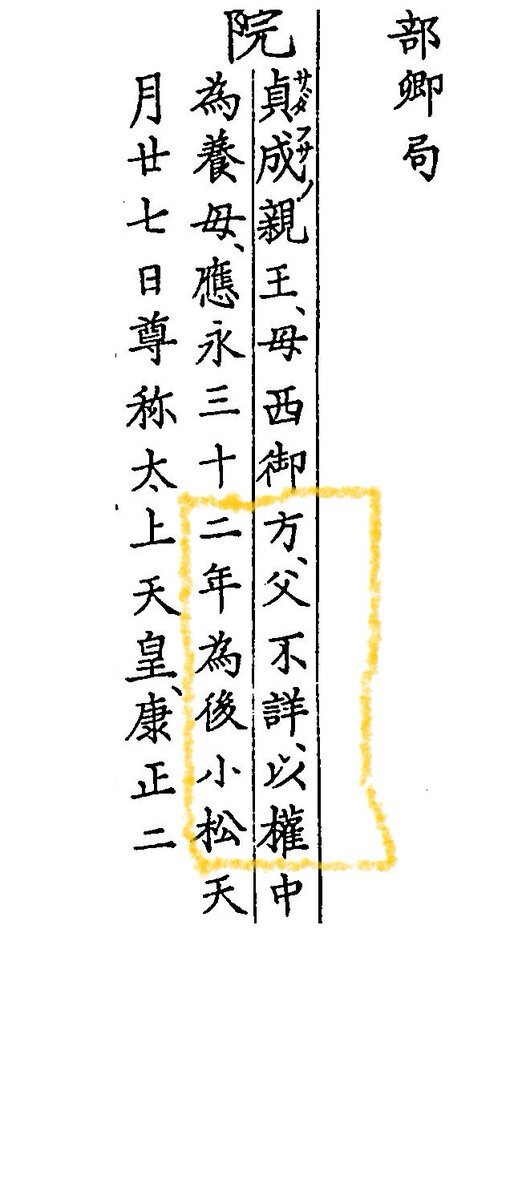 部卿局
院
貞成親王、母西御方、父不詳、以權中
サダフサノ
為養母、應永三十二年為後小松天
月廿七日尊称太上天皇、康正二